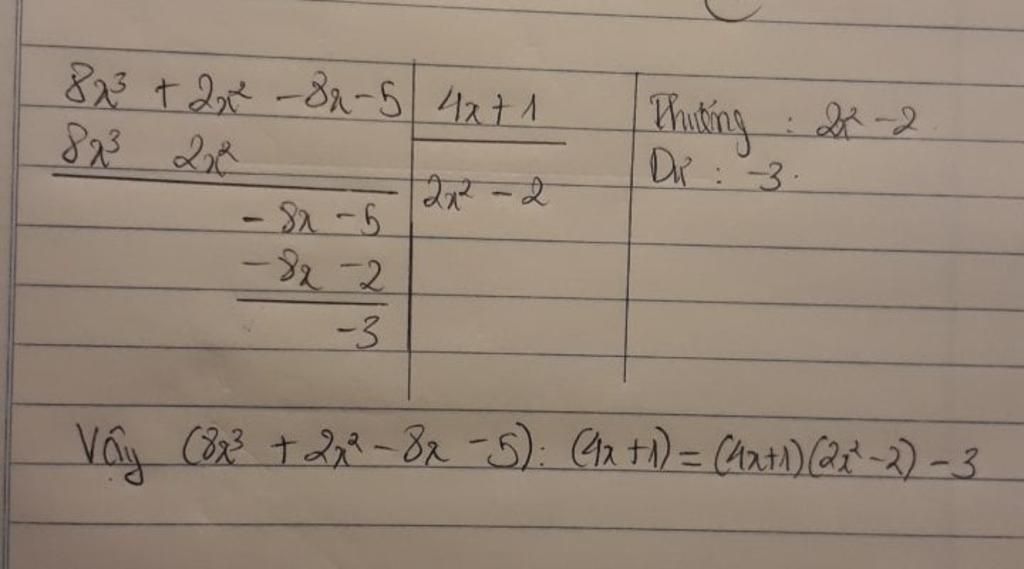 8x³ + 2x² - 8x - 5 | 4x + 1
8x³ 2x²
2x² - 2
- 8x - 5
- 8x - 2
-3
Thương : 2x² - 2
Dư : -3.
Vậy (8x³ + 2x² - 8x - 5) : (4x + 1) = (4x+1)(2x² - 2) - 3